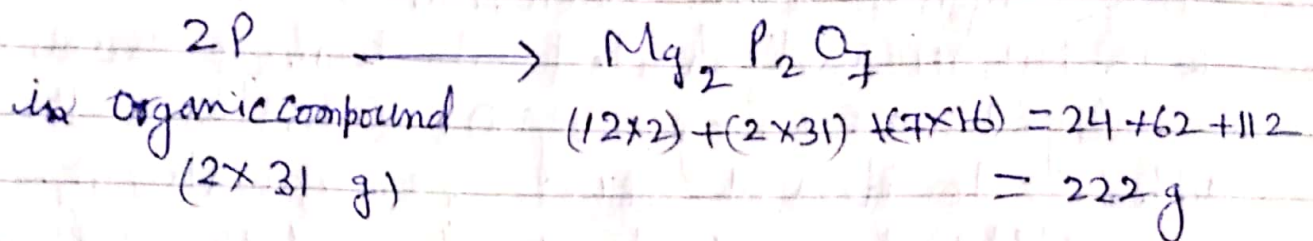 2P ⟶ Mg₂ P₂ O₇
in organic compound (12×2)+(2×31)+(7×16) = 24+62+112
(2×31 g) = 222 g